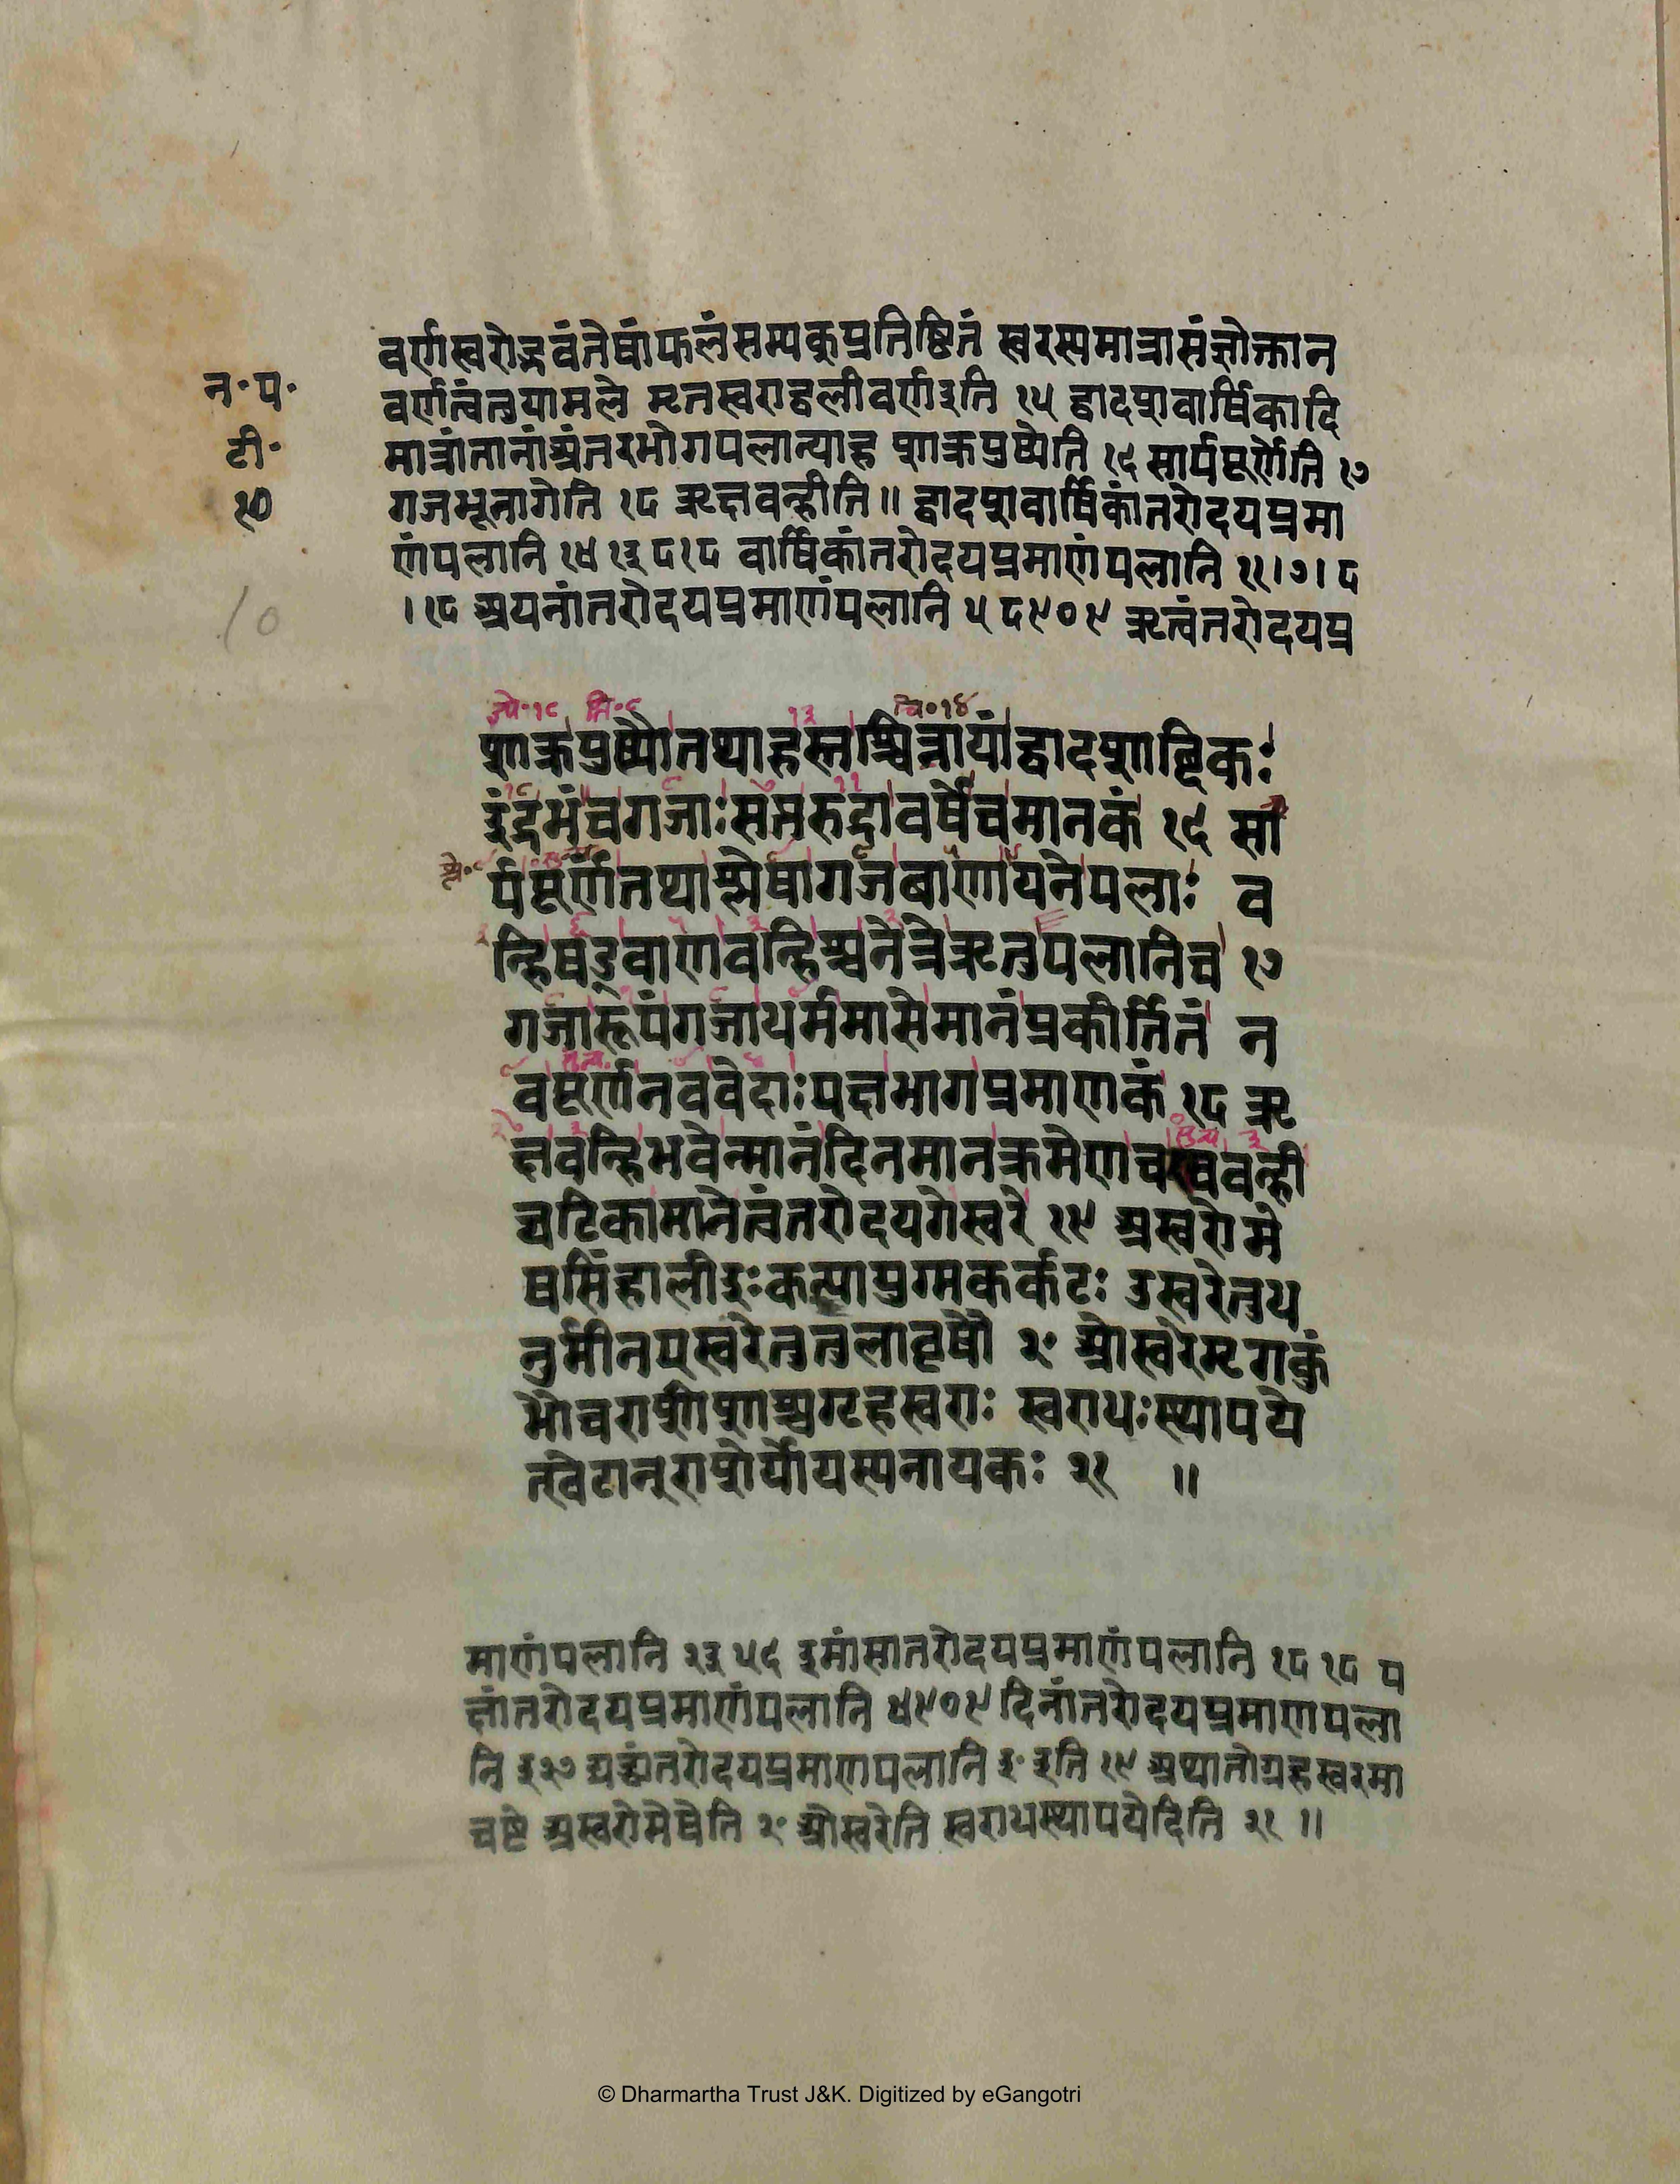 वर्णस्वरोद्भवंतेषांफलंसम्यक्प्रतिष्ठितं स्वरस्यमात्रासंज्ञोक्तान
न॰प॰
वर्णत्वंतुयामले मृतस्वराद्बलीवर्णइति १५ द्वादशवार्षिकादि
टी॰
मात्रांतानांअंतरभोगपलान्याह शाक्रपुष्येति १६ सार्पषट्वर्णेति १७
१०
गजभूनागेति १८ ऋक्षवन्हीति॥ द्वादशवार्षिकांतरोदयप्रमा
णंपलानि १४ १३ ८ १८ वार्षिकांतरोदयप्रमाणंपलानि ११।७।८
।१८ अयनांतरोदयप्रमाणंपलानि ५८९०९ ऋत्वंतरोदयप्र
10
शाक्रपुष्यौतथाहस्तश्चित्रायांद्वादशाब्दिकः
इंद्रभंचगजाःसप्तरुद्रावर्षेचमानकं १६ सा
र्पषट्वर्णतथाश्लेषागजबाणायनेपलाः व
न्हिषड्वाणवन्हिश्चनेत्रेऋतुपलानिच १७
गजारूपंगजाधर्ममासेमानंप्रकीर्तितं न
वषट्वर्णनववेदाःपक्षभागप्रमाणकं १८ ऋ
क्षवन्हिभवेन्मानंदिनमानक्रमेणच खवन्ही
घटिकामानेत्वंतरोदयगेस्वरे १९ अस्वरोमे
षसिंहालीइःकन्यायुग्मकर्कटः उस्वरेतुध
नुर्मीनएस्वरेतुतुलावृषौ २० ओस्वरेमृगकुं
भौचराशीशाश्चग्रहस्वराः स्वराधःस्थापये
त्खेटान्राशेर्योयस्यनायकः २१ ॥
माणंपलानि २३ ५६ ३मांसातरोदयप्रमाणंपलानि १८ १८ प
क्षांतरोदयप्रमाणंपलानि ४९०९ दिनांतरोदयप्रमाणपला
नि ३२७ घट्यंतरोदयप्रमाणपलानि ३० इति १९ अथातोग्रहस्वरमा
चष्टे अस्वरोमेषेति २० ओस्वरेति स्वराधस्थापयेदिति २१ ॥
© Dharmartha Trust J&K. Digitized by eGangotri